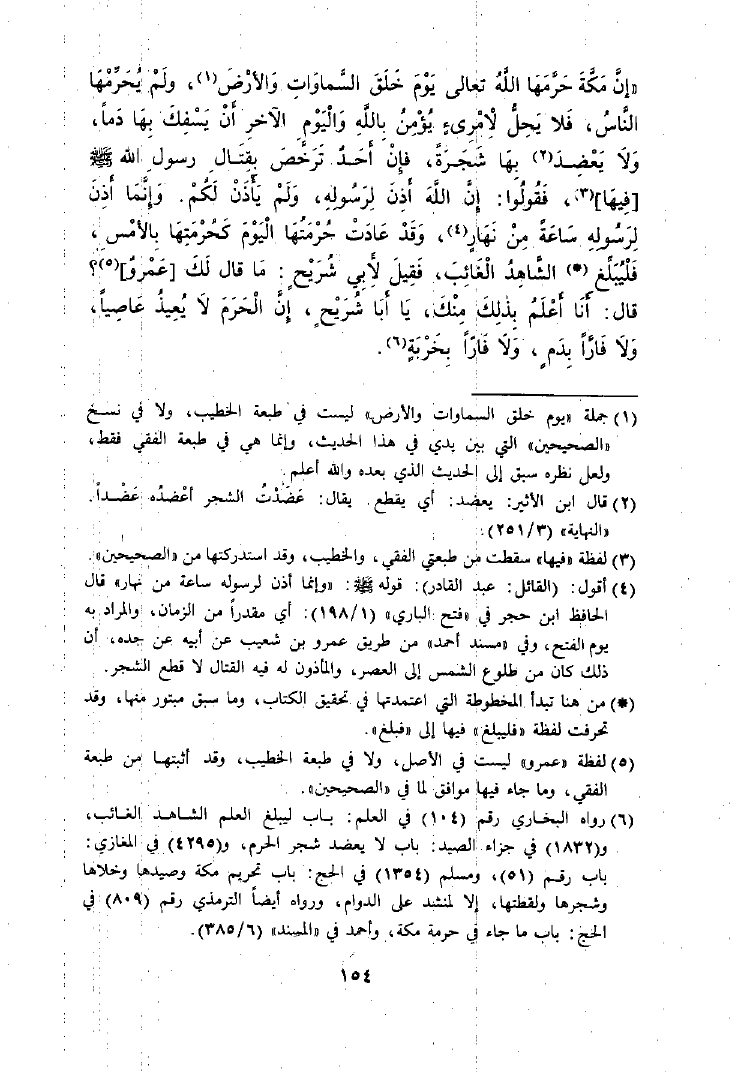 «إِنَّ مَكَّةَ حَرَّمَهَا اللَّهُ تعالى يَوْمَ خَلَقَ السَّماوَاتِ وَالأَرْضَ(١)، ولَمْ يُحَرِّمْهَا
النَّاسُ، فَلا يَحِلُّ لِامْرِىءٍ يُؤْمِنُ بِاللَّهِ وَالْيَوْمِ الآخرِ أَنْ يَسْفِكَ بِهَا دَماً،
وَلَا يَعْضِدَ(٢) بِهَا شَجَرَةً، فَإِنْ أَحَدٌ تَرَخَّصَ بِقِتَالِ رسولِ الله ﷺ
[فِيهَا](٣)، فَقُولُوا: إِنَّ اللَّهَ أَذِنَ لِرَسُولِهِ، وَلَمْ يَأْذَنْ لَكُمْ. وَإِنَّمَا أَذِنَ
لِرَسُولِهِ سَاعَةً مِنْ نَهَارٍ(٤)، وَقَدْ عَادَتْ حُرْمَتُهَا الْيَوْمَ كَحُرْمَتِهَا بِالأَمْسِ،
فَلْيُبَلِّغِ(*) الشَّاهِدُ الْغَائِبَ، فَقِيلَ لِأَبِي شُرَيْحٍ: مَا قال لَكَ [عَمْروٌ](٥)؟
قال: أَنَا أَعْلَمُ بِذَلِكَ مِنْكَ، يَا أَبَا شُرَيْحٍ، إِنَّ الْحَرَمَ لَا يُعِيذُ عَاصِياً،
وَلَا فَارّاً بِدَمٍ، وَلَا فَارّاً بِخَرْبَةٍ(٦).
(١) جملة «يوم خلق السماوات والأرض» ليست في طبعة الخطيب، ولا في نسخ
«الصحيحين» التي بين يدي في هذا الحديث، وإنما هي في طبعة الفقي فقط،
ولعل نظره سبق إلى الحديث الذي بعده والله أعلم.
(٢) قال ابن الأثير: يعضد: أي يقطع. يقال: عَضَدْتُ الشجر أعْضُده عَضْداً.
«النهاية» (٢٥١/٣).
(٣) لفظة «فيها» سقطت من طبعتي الفقي، والخطيب، وقد استدركتها من «الصحيحين».
(٤) أقول: (القائل: عبد القادر): قوله ﷺ: «وإنما أذن لرسوله ساعة من نهار» قال
الحافظ ابن حجر في «فتح الباري» (١٩٨/١): أي مقدراً من الزمان، والمراد به
يوم الفتح، وفي «مسند أحمد» من طريق عمرو بن شعيب عن أبيه عن جده، أن
ذلك كان من طلوع الشمس إلى العصر، والمأذون له فيه القتال لا قطع الشجر.
(*) من هنا تبدأ المخطوطة التي اعتمدتها في تحقيق الكتاب، وما سبق مبتور منها، وقد
تحرفت لفظة «فليبلغ» فيها إلى «فبلغ».
(٥) لفظة «عمرو» ليست في الأصل، ولا في طبعة الخطيب، وقد أثبتها من طبعة
الفقي، وما جاء فيها موافق لما في «الصحيحين».
(٦) رواه البخاري رقم (١٠٤) في العلم: باب ليبلغ العلم الشاهد الغائب،
و(١٨٣٢) في جزاء الصيد: باب لا يعضد شجر الحرم، و(٤٢٩٥) في المغازي:
باب رقم (٥١)، ومسلم (١٣٥٤) في الحج: باب تحريم مكة وصيدها وخلاها
وشجرها ولقطتها، إلا لمنشد على الدوام، ورواه أيضاً الترمذي رقم (٨٠٩) في
الحج: باب ما جاء في حرمة مكة، وأحمد في «المسند» (٣٨٥/٦).
١٥٤